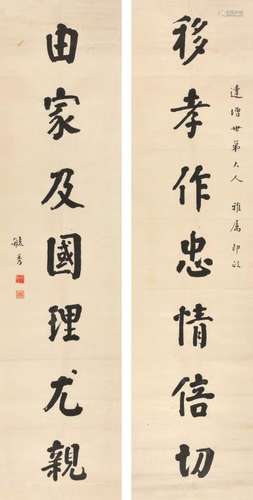 達增世弟大人 雅屬即政
移孝作忠情倍切
由家及國理尤親
毓秀